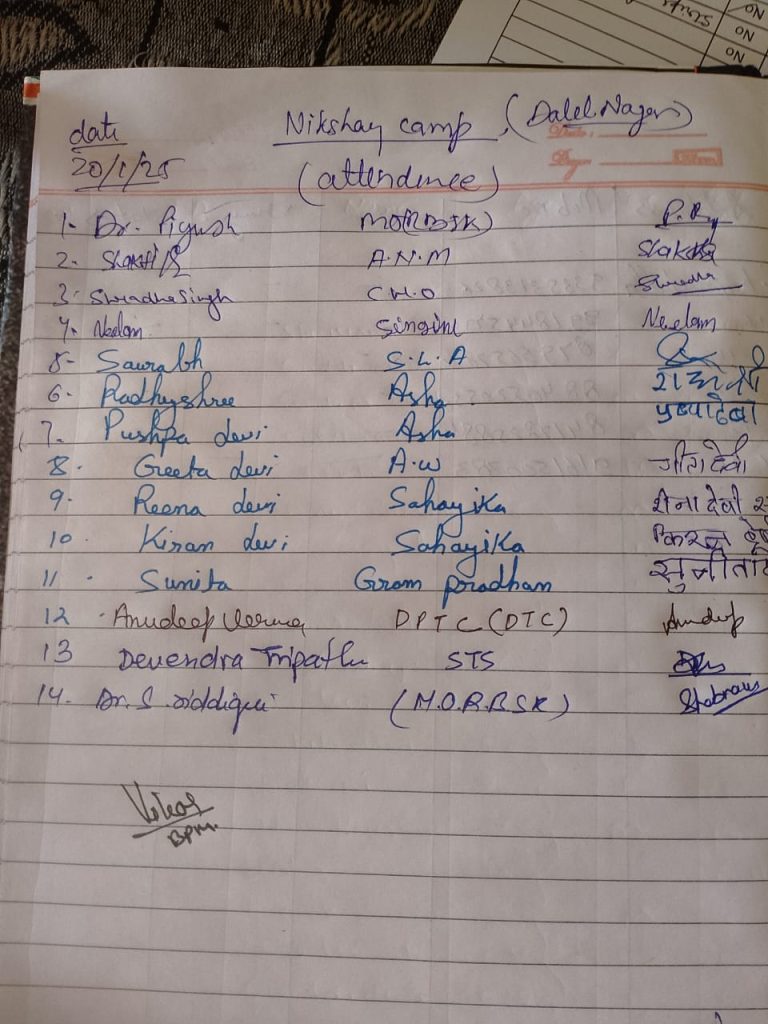 NO
NO
NO
date Nikshay camp, (Dalel Nagar)
20/1/25 (attendence)
1. Dr. Piyush MO(RBSK) P.R
2. Shakti A.N.M Shakti
3. Shradha Singh C.H.O Shradha
4. Neelam Singini Neelam
5- Saurabh S.L.A
6. Radhyshree Asha
7. Pushpa devi Asha पुष्पादेवी
8. Geeta devi A.W गीता देवी
9. Reena devi Sahayika रीना देवी
10. Kiran devi Sahayika किरन
11. Sunita Gram pradhan सुनीता
12. Anudeep Verma DPTC (DTC) Anudeep
13 Devendra Tripathi STS
14. Dr. S. Siddiqui (M.O.R.B.S.K)
BPM